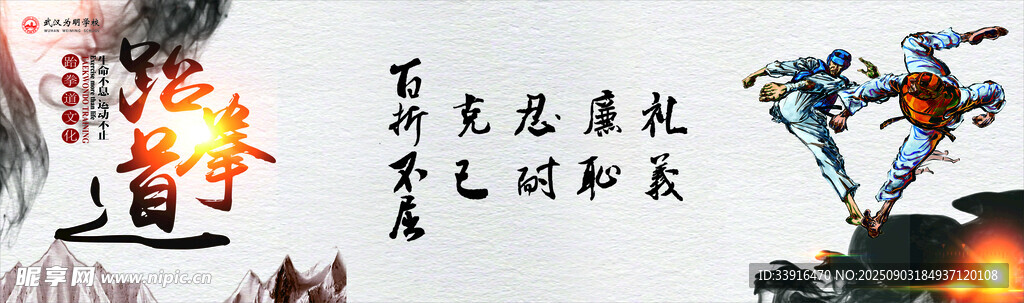 武汉为明学校
WUHAN WEIMING SCHOOL
跆拳道
生命不息 运动不止
Exercise more than life
TAEKWONDO TRAINING
跆拳道文化
礼義
廉恥
忍耐
克己
百折不屈
昵享网 www.nipic.cn
ID:33916470 NO:20250903184937120108